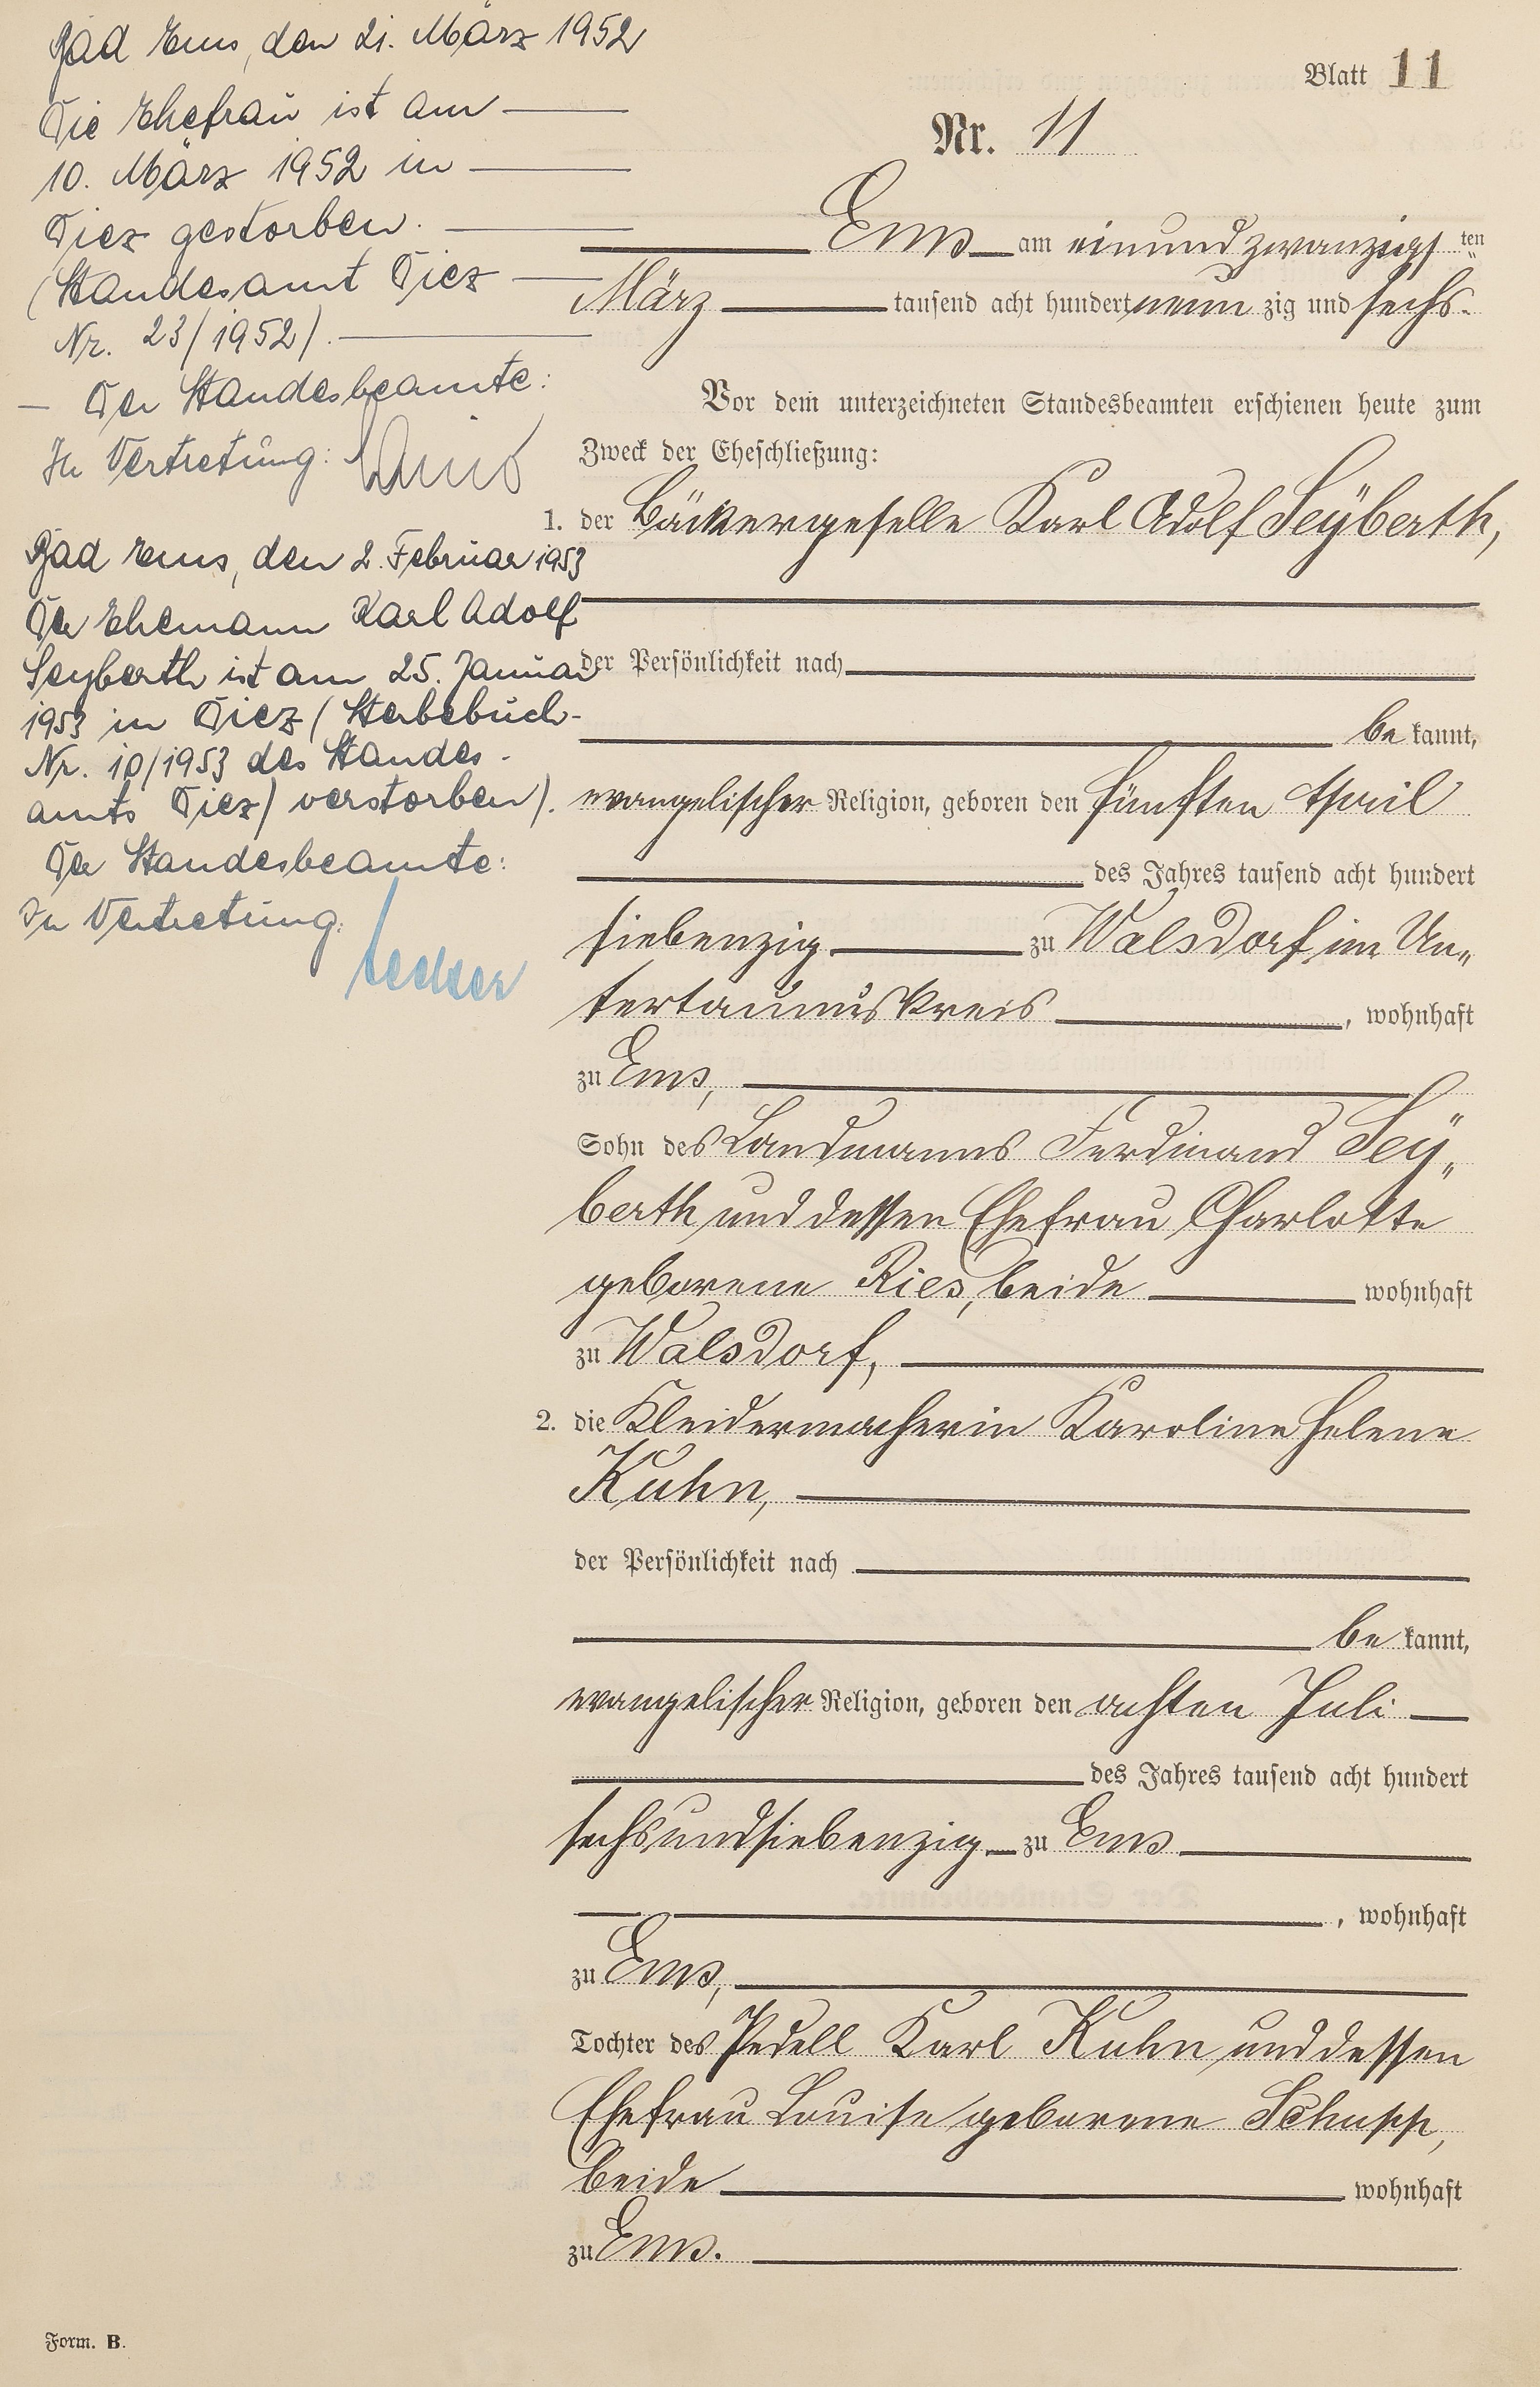 Bad Ems, den 21. März 1952
Die Ehefrau ist am
10. März 1952 in
Diez gestorben.
(Standesamt Diez
Nr. 23/1952).
Der Standesbeamte:
In Vertretung:
Bad Ems, den 2. Februar 1953
Der Ehemann Karl Adolf
Seyberth ist am 25. Januar
1953 in Diez (Sterbebuch-
Nr. 10/1953 des Standes-
amts Diez) verstorben).
Der Standesbeamte:
In Vertretung:
Blatt 11
Nr. 11
Ems am einundzwanzigs ten
März tausend acht hundert neun zig und sechs.
Vor dem unterzeichneten Standesbeamten erschienen heute zum
Zweck der Eheschließung:
1. der Bäckergeselle Karl Adolf Seÿberth,
der Persönlichkeit nach
be kannt,
evangelischer Religion, geboren den fünften April
des Jahres tausend acht hundert
siebenzig zu Walsdorf im Un„
tertaunuskreis, wohnhaft
zu Ems,
Sohn des Landmanns Ferdinand Seÿ„
berth und dessen Ehefrau Charlotte
geborene Ries, beide wohnhaft
zu Walsdorf,
2. die Kleidermacherin Karoline Helene
Kuhn,
der Persönlichkeit nach
be kannt,
evangelischer Religion, geboren den achten Juli
des Jahres tausend acht hundert
sechsundsiebenzig zu Ems
, wohnhaft
zu Ems,
Tochter des Pedell Karl Kuhn und dessen
Ehefrau Louise geborene Schupp,
beide wohnhaft
zu Ems.
Form. B.